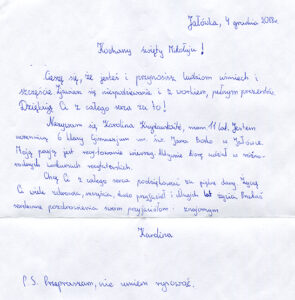 Jałówka, 4 grudnia 2013r.
Kochany święty Mikołaju!
Cieszę się, że jesteś i przynosisz ludziom uśmiech i
szczęście. Zjawiasz się niespodziewanie i z workiem, pełnym prezentów.
Dziękuję Ci z całego serca za to!
Nazywam się Karolina mam 11 lat. Jestem
uczennicą 6 klasy Gimnazjum w. św. Jana Bosko w Jałówce.
Moją pasją jest recytowanie wierszy. Aktywnie biorę udział w różno-
rodnych konkursach recytatorskich.
Chcę Ci z całego serca podziękować za piękne dary. Życzę
Ci wiele zdrowia, szczęścia, dużo przyjaciół i długich lat życia. Przekaż
serdeczne pozdrowienia swoim przyjaciołom i znajomym
Karolina
P.S. Przepraszam, nie umiem rysować.